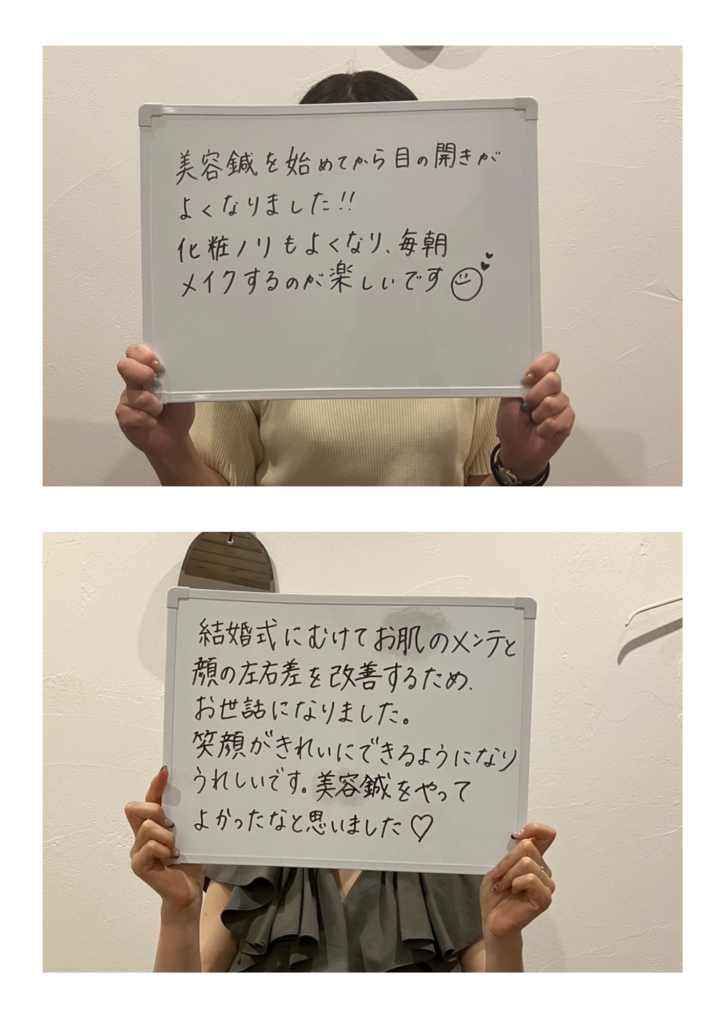 美容鍼を始めてから目の開きが
よくなりました!!
化粧ノリもよくなり、毎朝
メイクするのが楽しいです
結婚式にむけてお肌のメンテと
顔の左右差を改善するため、
お世話になりました。
笑顔がきれいにできるようになり
うれしいです。美容鍼をやって
よかったなと思いました♡